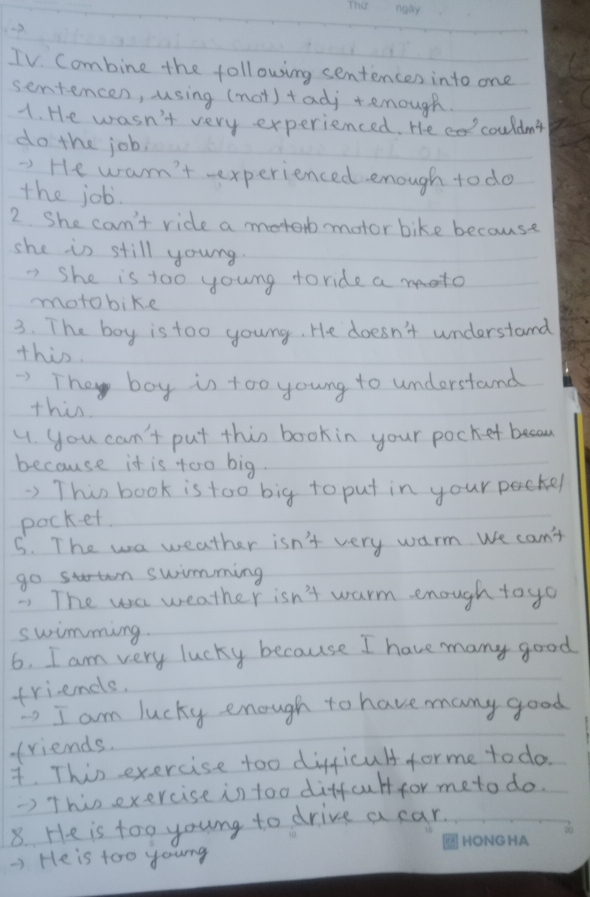 Thứ ngày
→
IV. Combine the following sentences into one
sentences, using (not) + adj + enough.
1. He wasn't very experienced. He co' couldn't
do the job.
→ He wasn't experienced enough to do
the job.
2. She can't ride a motorb motor bike because
she is still young.
→ She is too young to ride a moto
motobike
3. The boy is too young. He doesn't understand
this.
→ They boy is too young to understand
this.
4. You can't put this book in your pocket becau
because it is too big.
→ This book is too big to put in your pocket
pocket.
5. The wa weather isn't very warm We can't
go swimming
→ The wa weather isn't warm enough to go
swimming.
6. I am very lucky because I have many good
friends.
→ I am lucky enough to have many good
friends.
7. This exercise too difficult for me to do.
→ This exercise is too diffcult for me to do.
8. He is too young to drive a car.
→ He is too young
HONG HA